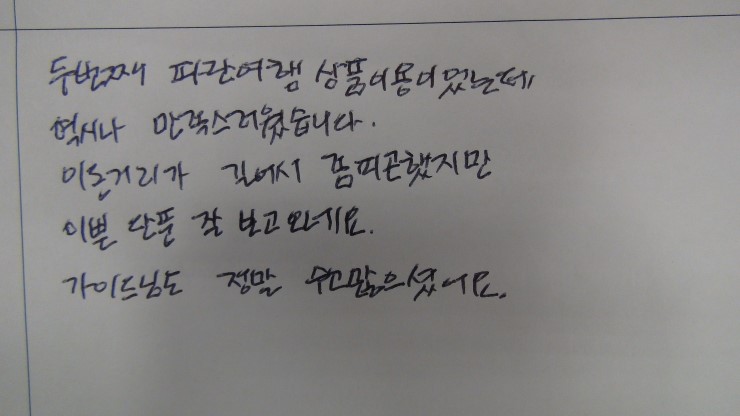 두번째 파란여행 상품이용이었는데
역시나 만족스러웠습니다.
이동거리가 길어서 좀피곤했지만
이쁜 단풍 잘 보고 오네요.
가이드님도 정말 수고많으셨어요.